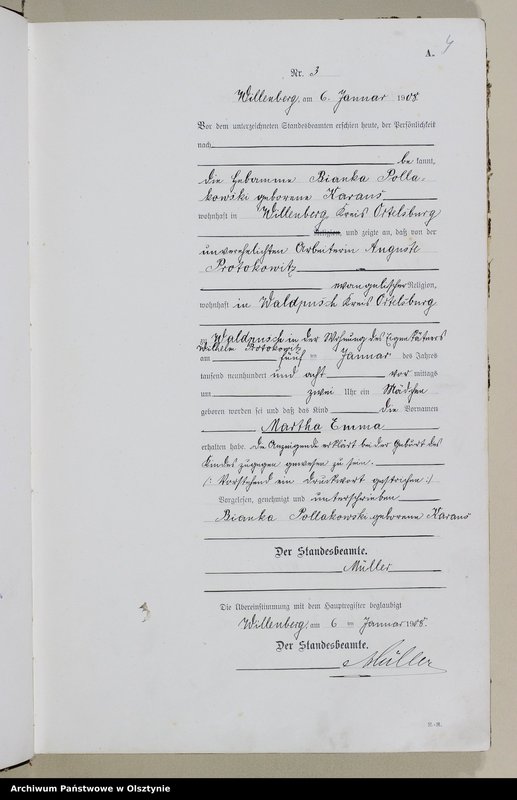 A.
4
Nr. 3
Willenberg, am 6. Januar 1908
Vor dem unterzeichneten Standesbeamten erschien heute, der Persönlichkeit
nach
be kannt,
die Hebamme Bianka Polla-
kowski geborene Karaus
wohnhaft in Willenberg Kreis Ortelsburg
Religion, und zeigte an, daß von der
unverehelichten Arbeiterin Auguste
Protokowitz
evangelischer Religion,
wohnhaft in Waldpusch Kreis Ortelsburg
zu Waldpusch in der Wohnung des Eigenkätners
Wilhelm Protokowitz
am fünf ten Januar des Jahres
tausend neunhundert und acht vor mittags
um zwei Uhr ein Mädchen
geboren worden sei und daß das Kind die Vornamen
Martha Emma
erhalten habe. Die Anzeigende erklärt bei der Geburt des
Kindes zugegen gewesen zu sein.
(: Vorstehend ein Druckwort gestrichen :)
Vorgelesen, genehmigt und unterschrieben
Bianka Pollakowski geborene Karaus
Der Standesbeamte.
Müller
Die Übereinstimmung mit dem Hauptregister beglaubigt
Willenberg, am 6 ten Januar 1908.
Der Standesbeamte.
Müller
Archiwum Państwowe w Olsztynie